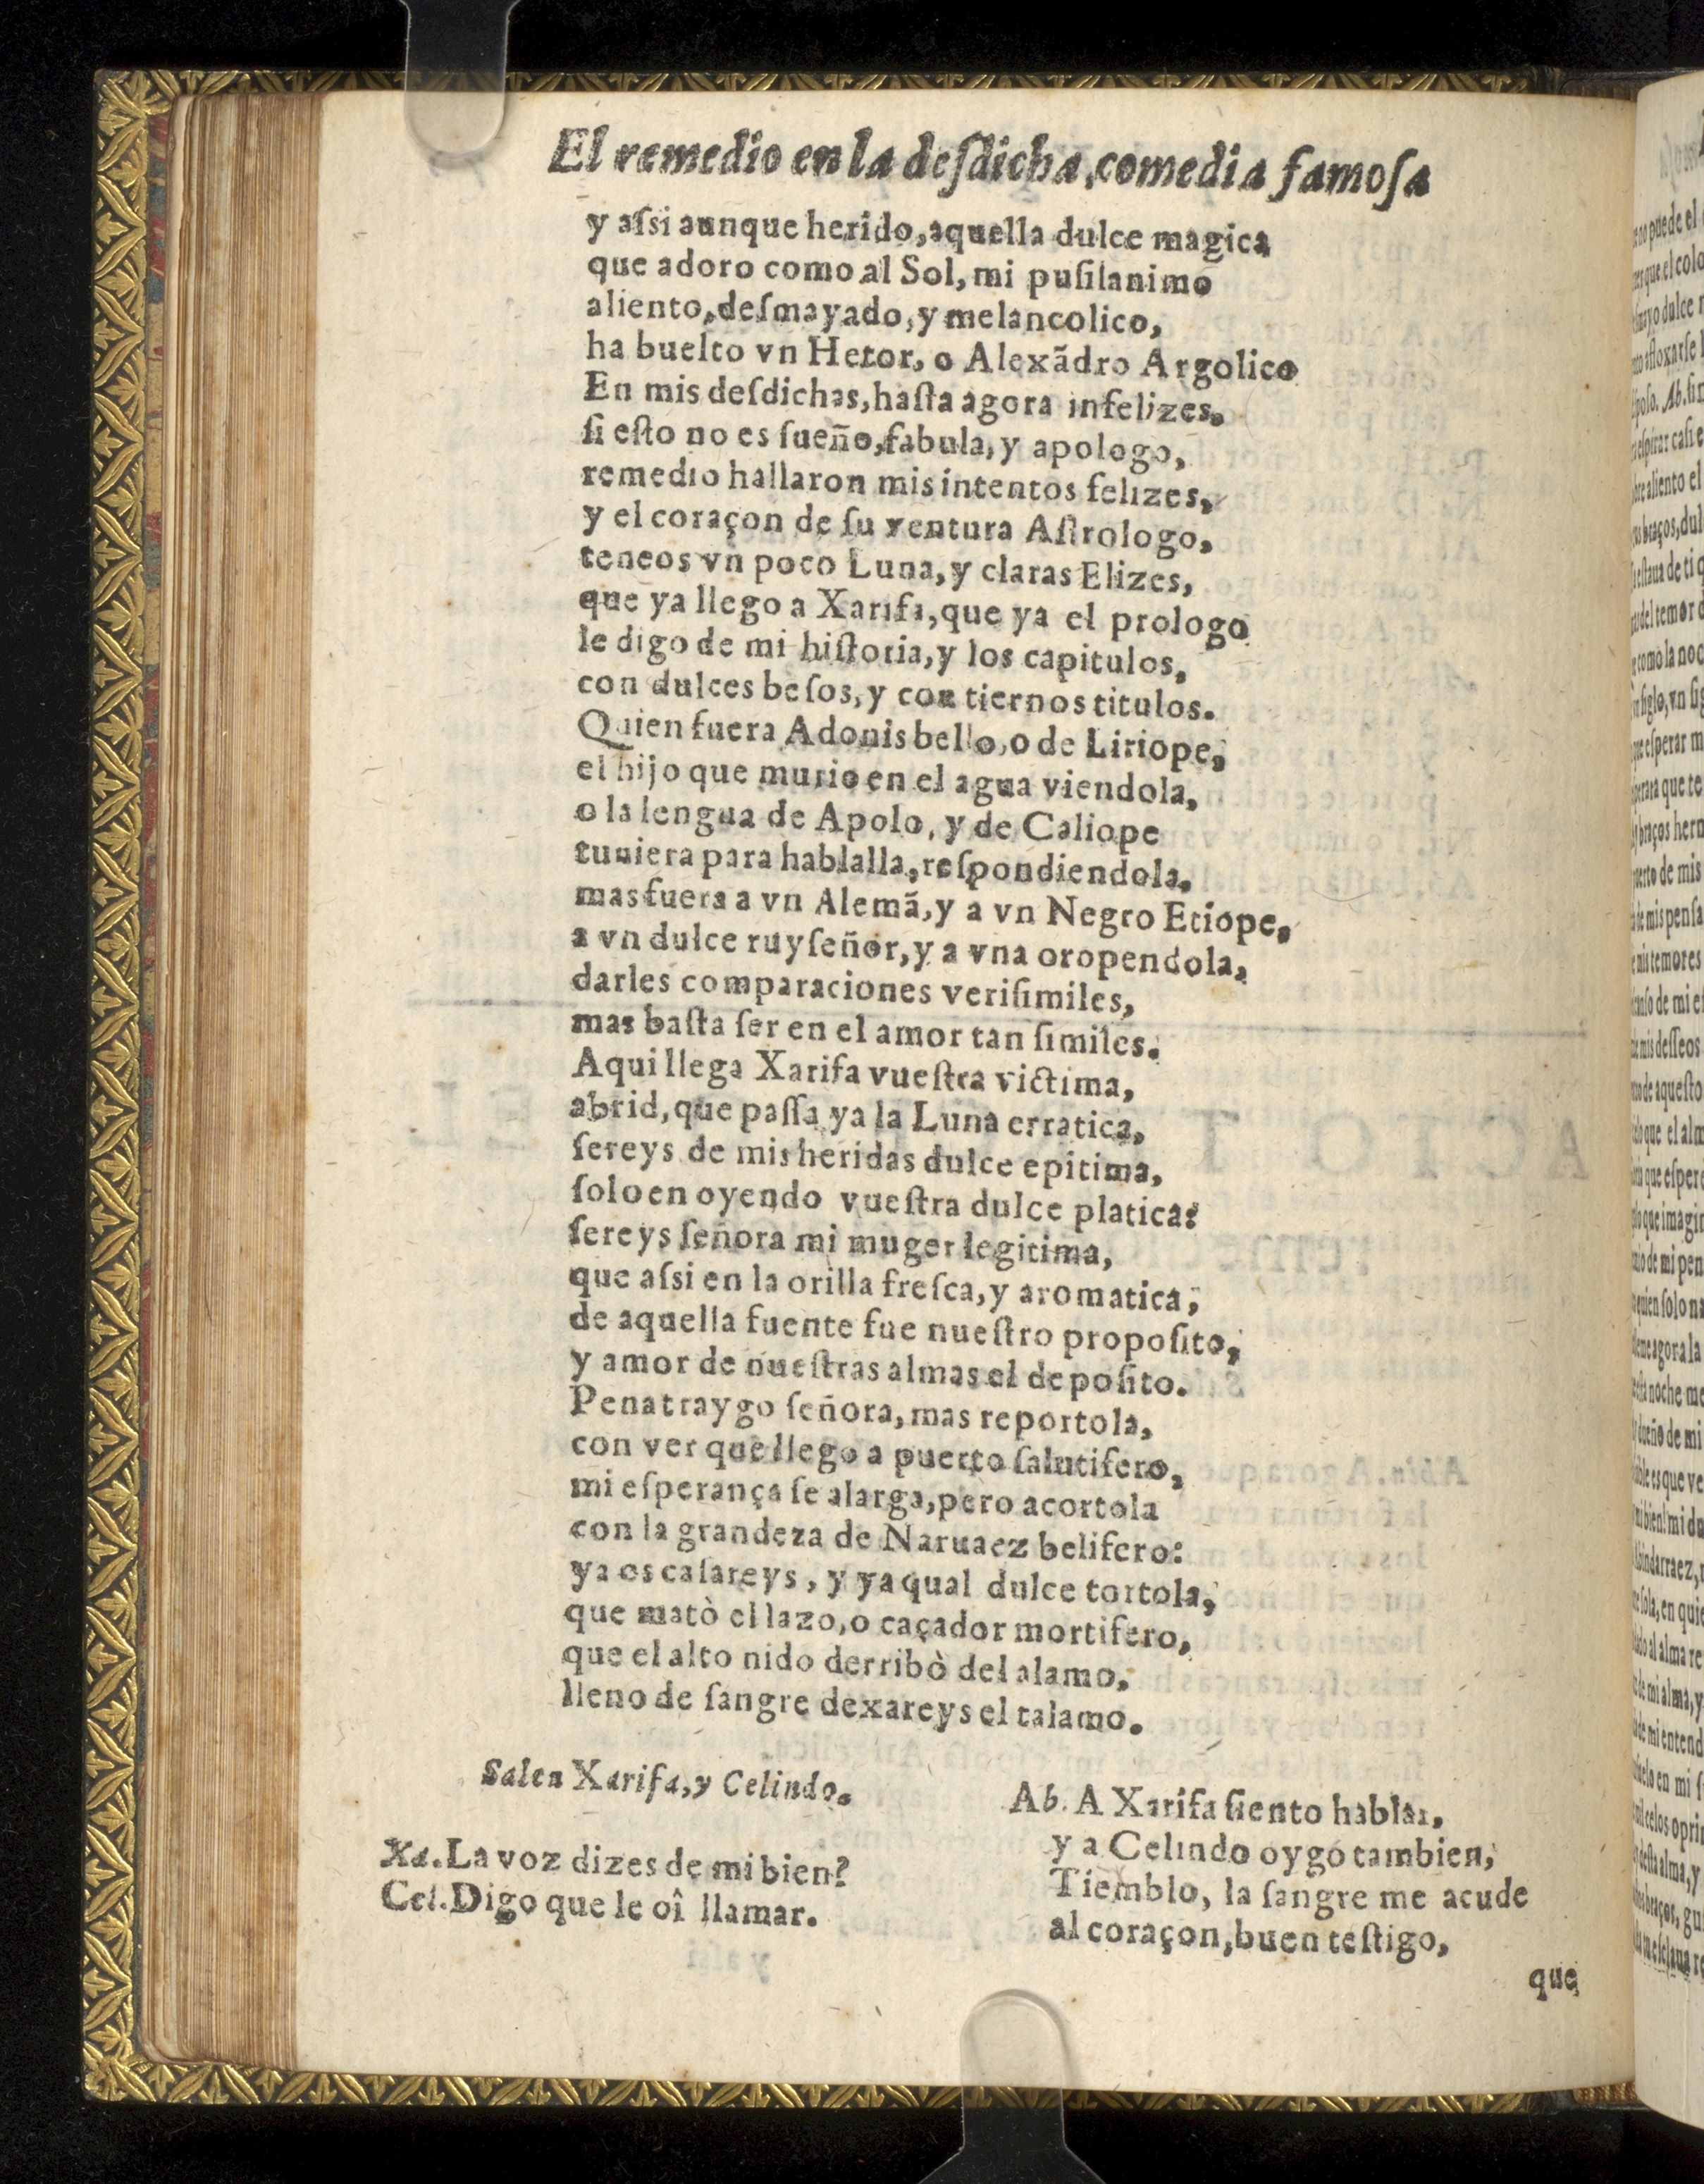 El remedio en la deſdicha, comedia famoſa
y aſsi aunque herido, aquella dulce magica
que adoro como al Sol, mi puſilanimo
aliento, deſmayado, y melancolico,
ha buelto vn Hetor, o Alexãdro Argolico
En mis deſdichas, haſta agora infelizes,
ſi eſto no es ſueño, fabula, y apologo,
remedio hallaron mis intentos felizes,
y el coraçon de ſu ventura Aſtrologo,
teneos vn poco Luna, y claras Elizes,
que ya llego a Xarifa, que ya el prologo
le digo de mi hiſtoria, y los capitulos,
con dulces beſos, y con tiernos titulos.
Quien fuera Adonis bello, o de Liriope,
el hijo que murio en el agua viendola,
o la lengua de Apolo, y de Caliope
tuuiera para hablalla, reſpondiendola,
mas fuera a vn Alemã, y a vn Negro Etiope,
a vn dulce ruyſeñor, y a vna oropendola,
darles comparaciones veriſimiles,
mas baſta ſer en el amor tan ſimiles.
Aqui llega Xarifa vueſtra victima,
abrid, que paſſa ya la Luna erratica,
ſereys de mis heridas dulce epitima,
ſolo en oyendo vueſtra dulce platica:
ſereys ſeñora mi muger legitima,
que aſsi en la orilla freſca, y aromatica,
de aquella fuente fue nueſtro propoſito,
y amor de nueſtras almas el depoſito.
Pena traygo ſeñora, mas reportola,
con ver que llego a puerto ſalutifero,
mi eſperança ſe alarga, pero acortola
con la grandeza de Naruaez belifero:
ya os caſareys, y ya qual dulce tortola,
que matò el lazo, o caçador mortifero,
que el alto nido derribò del alamo,
lleno de ſangre dexareys el talamo.
Salen Xarifa, y Celindo.
Xa. La voz dizes de mi bien?
Cel. Digo que le oî llamar.
Ab. A Xarifa ſiento hablar,
y a Celindo oygo tambien,
Tiemblo, la ſangre me acude
al coraçon, buen teſtigo,
que